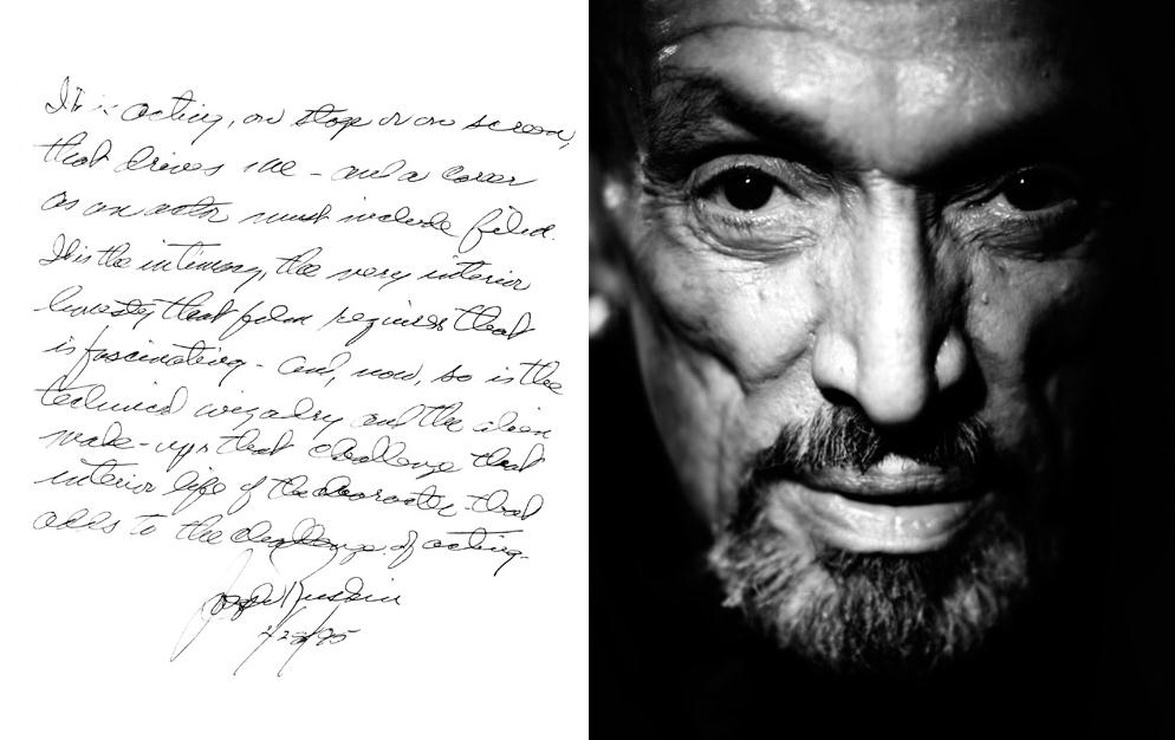 It is acting, on stage or on screen,
that drives me - and a career
as an actor must include film.
It is the intimacy, the very interior
honesty that film requires that
is fascinating - and, now, so is the
technical wizardry and the alien
make-ups that challenge that
interior life of the character that
adds to the challenge of acting.
Joseph Ruskin
2/23/95